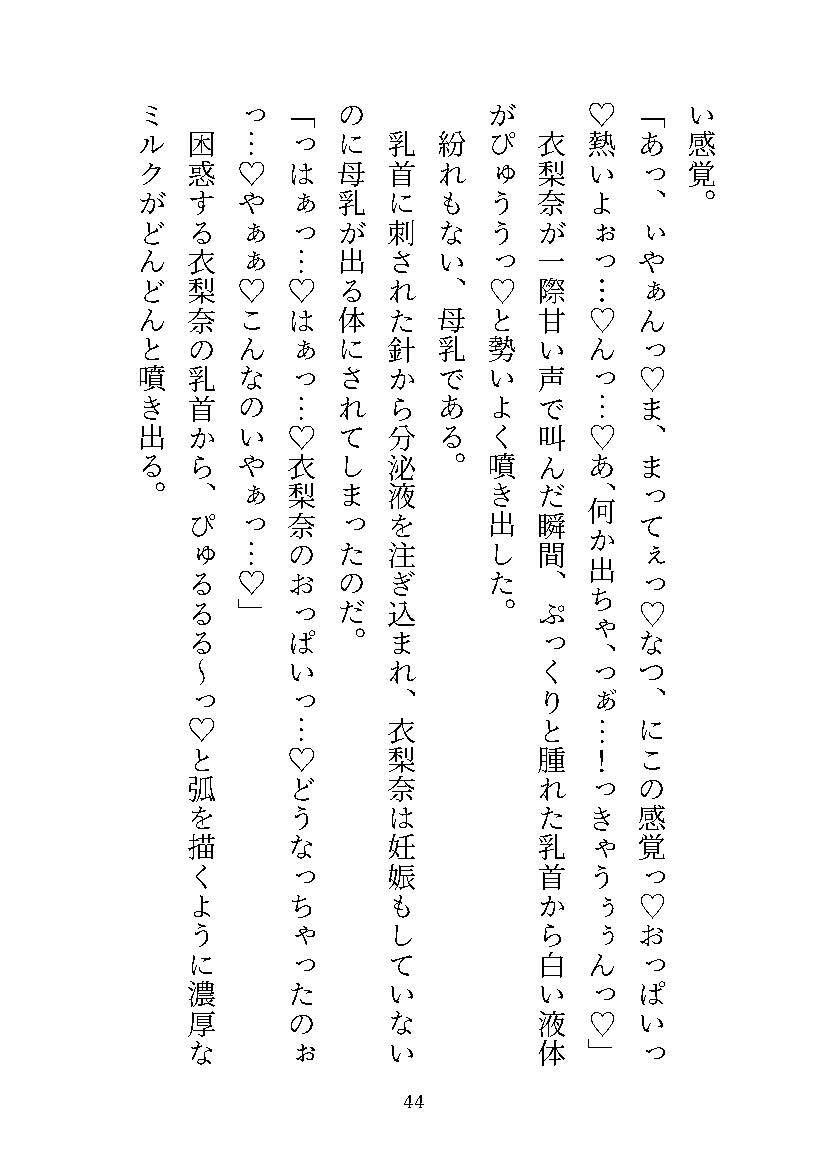 い感覚。
「あっ、ぃやぁんっ♡ま、まってぇっ♡なつ、にこの感覚っ♡おっぱいっ
♡熱いよぉっ…♡んっ…♡あ、何か出ちゃ、っあ゙…！っきゃうぅぅんっ♡」
　衣梨奈が一際甘い声で叫んだ瞬間、ぷっくりと腫れた乳首から白い液体
がぴゅううっ♡と勢いよく噴き出した。
　紛れもない、母乳である。
　乳首に刺された針から分泌液を注ぎ込まれ、衣梨奈は妊娠もしていない
のに母乳が出る体にされてしまったのだ。
「っはぁっ…♡はぁっ…♡衣梨奈のおっぱいっ…♡どうなっちゃったのぉ
っ…♡やぁぁ♡こんなのいやぁっ…♡」
　困惑する衣梨奈の乳首から、ぴゅるるる～っ♡と弧を描くように濃厚な
ミルクがどんどんと噴き出る。
44